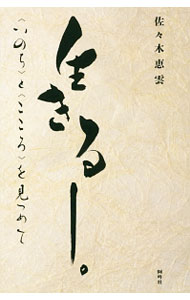 佐々木恵雲
生きる―。
〈いのち〉と〈こころ〉を見つめて